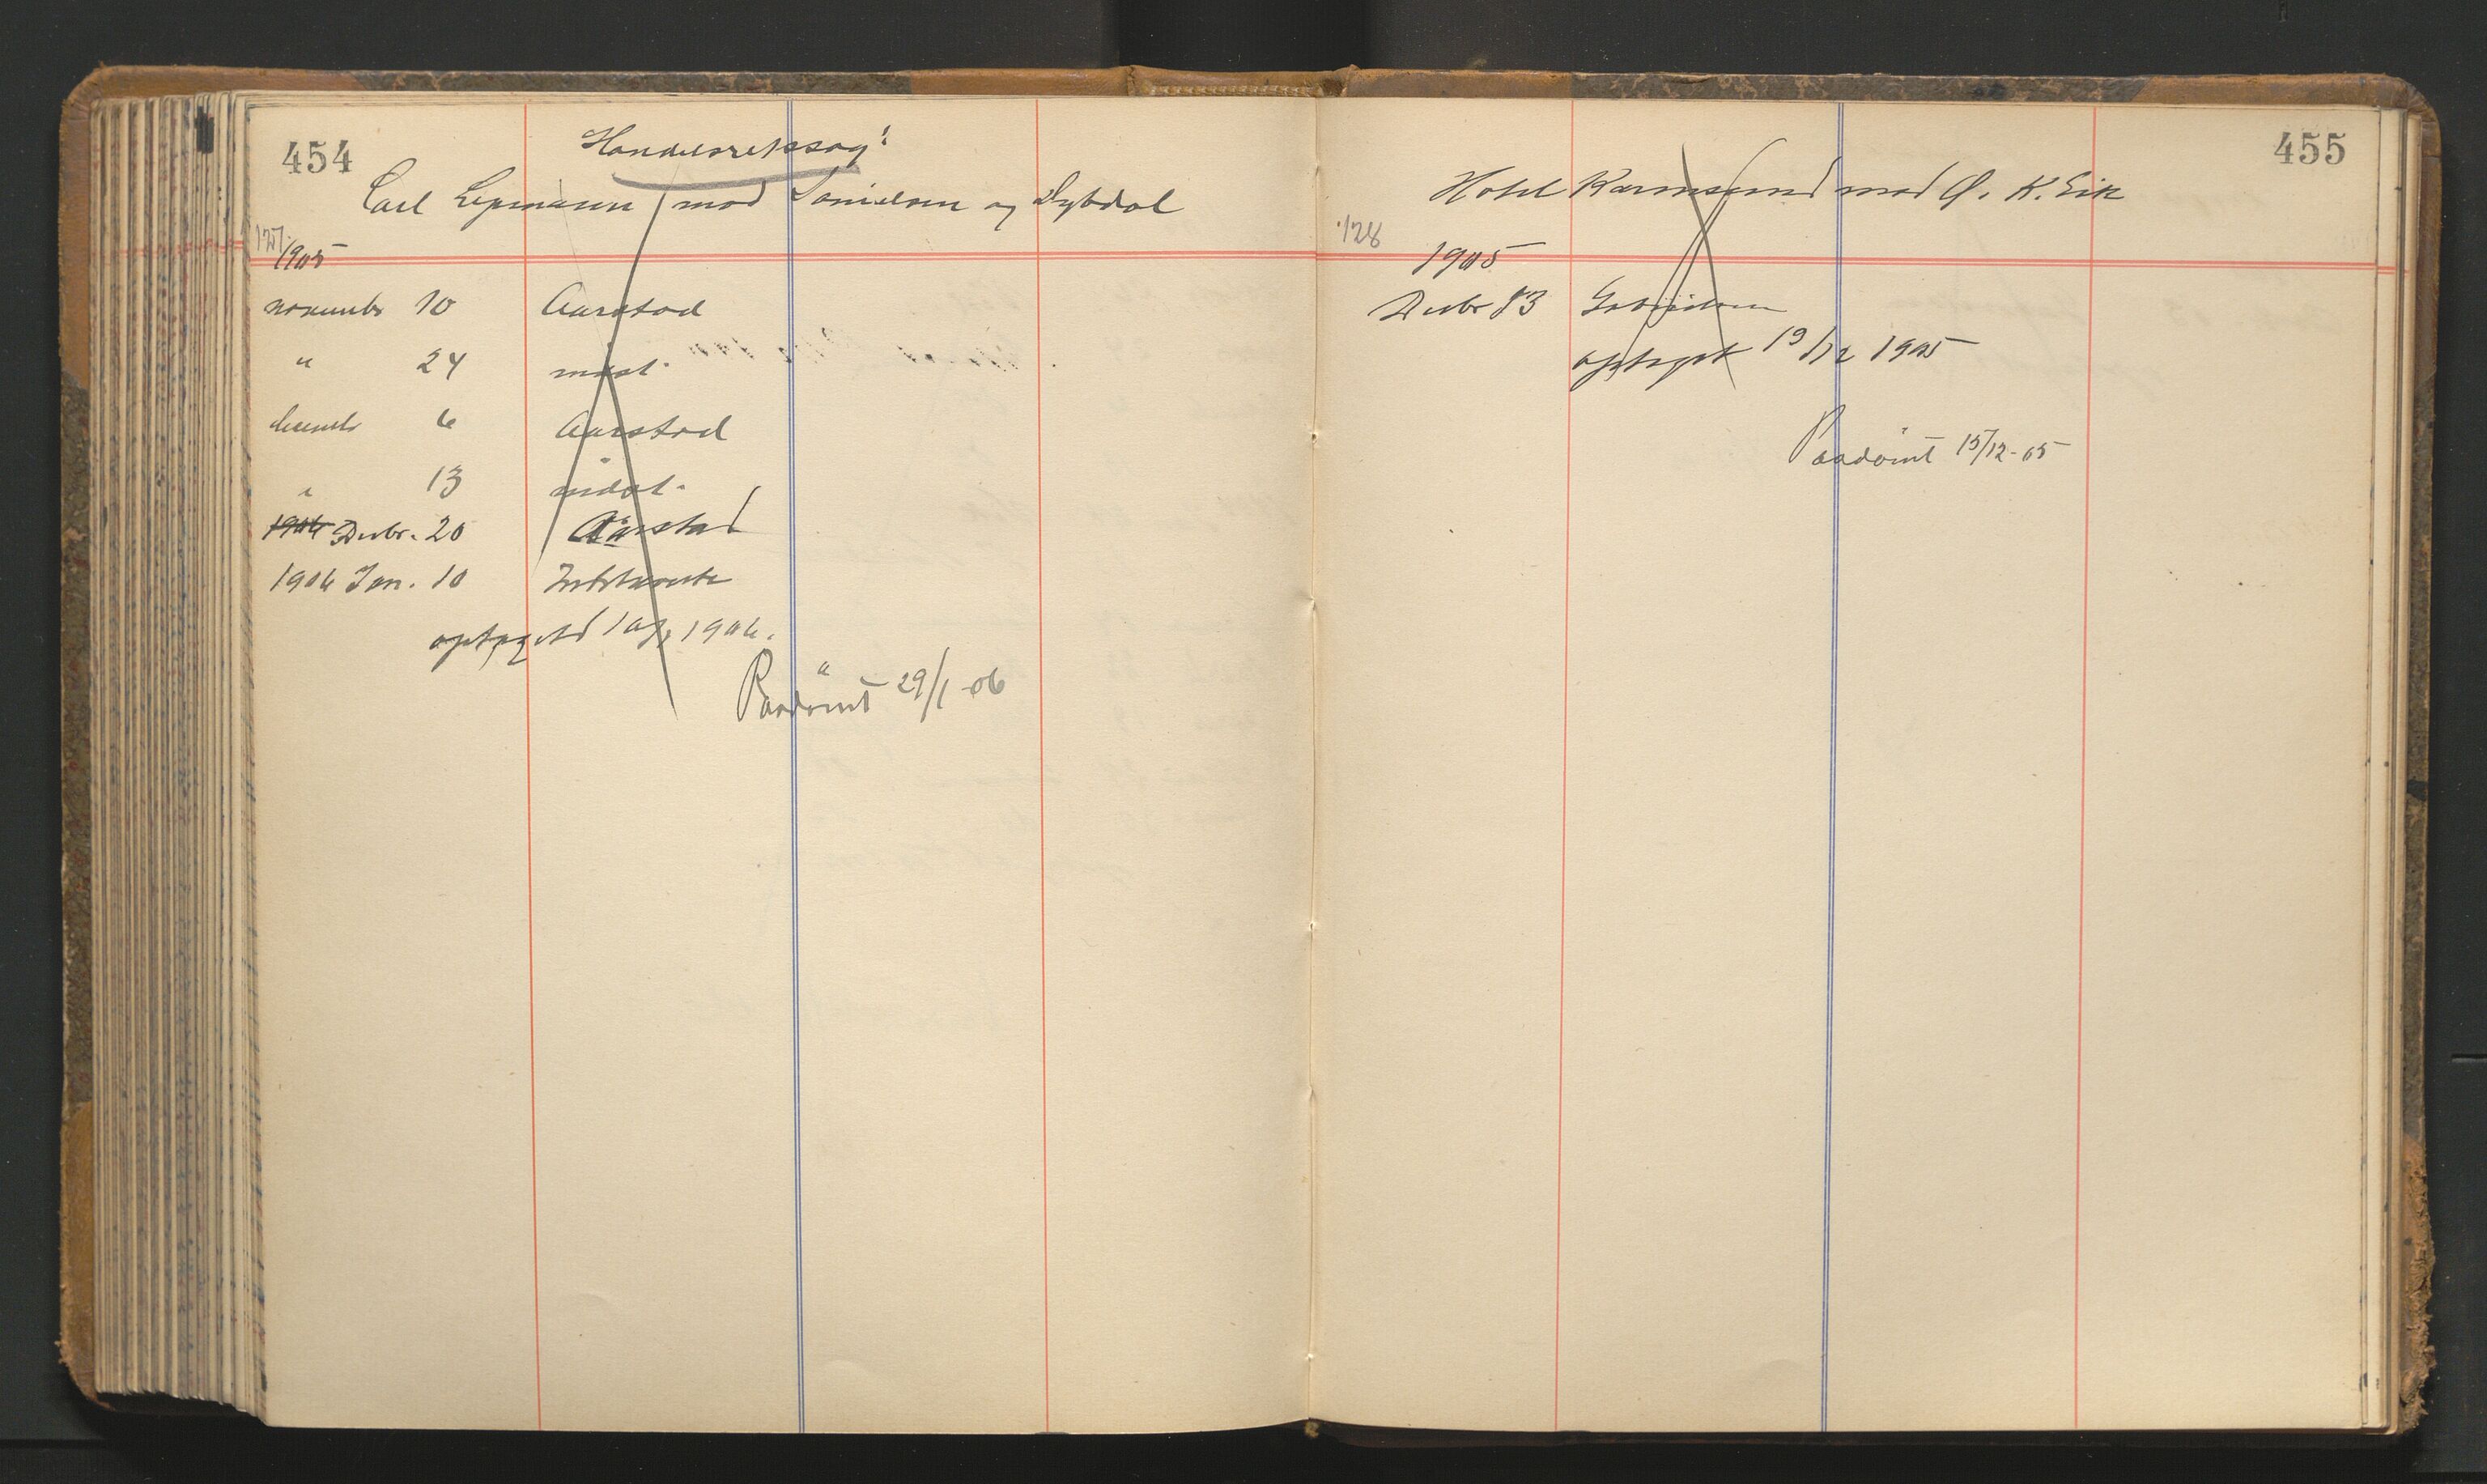 454
Handelsretssag:
Carl Lepmann mod Danielsen og Dybdal
127.
1905
november 10 Aarstad
" 24 modst.
decembr 6 Aarstad
" 13 modst.
1906 Decbr. 20 Aarstad
1906 Jan. 10
optaget 10/1 1906.
Paadömt 29/1 -06
455
Hotel Karmsund mod Ø. K. Eik
128
1905
Decbr 13
optaget 13/12 1905
Paadömt 15/12-05